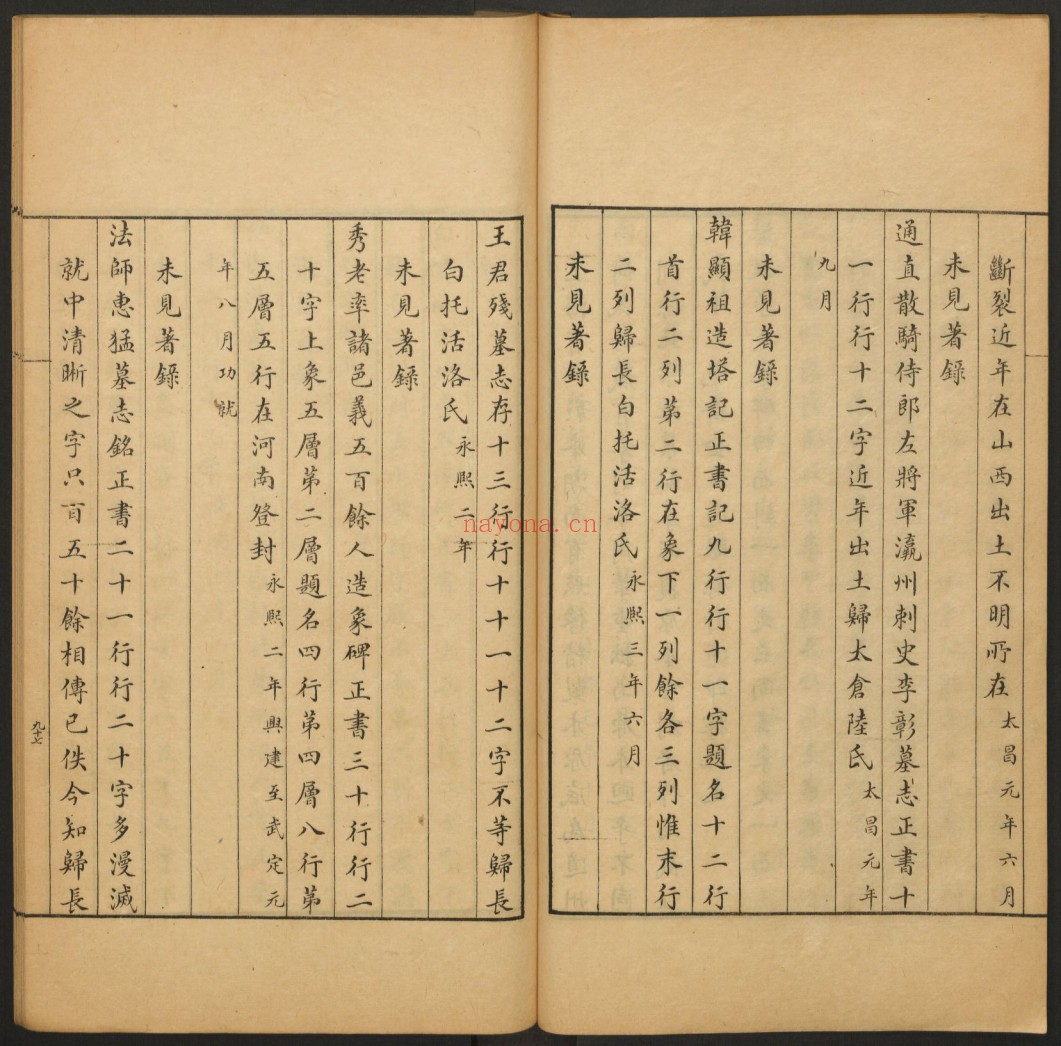 斷裂近年在山西出土不明所在太昌元年六月
未見著錄
通直散騎侍郎左將軍瀛州刺史李彰墓志正書十
一行行十二字近年出土歸太倉陸氏太昌元年
九月
未見著錄
韓顯祖造塔記正書記九行行十一字題名十二行
首行二列第二行在象下一列餘各三列惟末行
二列歸長白托活洛氏永熙三年六月
未見著錄
王君殘墓志存十三行行十十一十二字不等歸長
白托活洛氏永熙二年
未見著錄
秀老率諸邑義五百餘人造象碑正書三十行行二
十字上象五層第二層題名四行第四層八行第
五層五行在河南登封永熙二年興建至武定元
年八月功就
未見著錄
法師惠猛墓志銘正書二十一行行二十字多漫滅
就中清晰之字只百五十餘相傳已佚今知歸長
九十七
nayona.cn